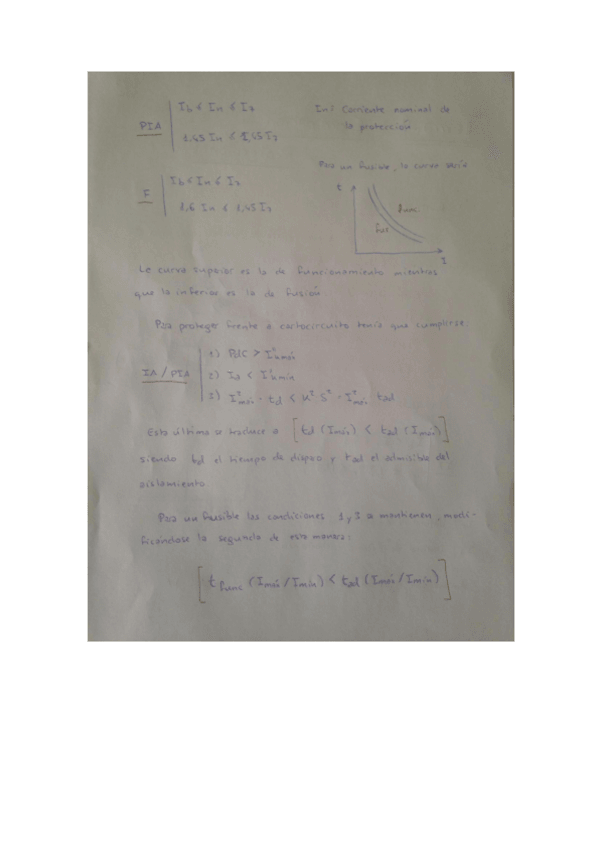 PIA
Ib ≤ In ≤ Iz
1,45 In ≤ 1,45 Iz
In: Corriente nominal de
la protección
F
Ib < In ≤ Iz
1,6 In ≤ 1,45 Iz
Para un fusible, la curva sería
t
func
fus
I
La curva superior es la de funcionamiento mientras
que la inferior es la de fusión.
Para proteger frente a cortocircuito tenía que cumplirse:
IA / PIA
1) PdC > I"kmáx
2) Ia < I"kmín
3) I²máx · td < K² S² = I²máx tad
Esta última se traduce a [td (Imáx) < tad (Imáx)]
siendo td el tiempo de disparo y tad el admisible del
aislamiento.
Para un fusible las condiciones 1 y 3 se mantienen, modi-
ficándose la segunda de esta manera:
[tfunc (Imáx / Imín) < tad (Imáx / Imín)]